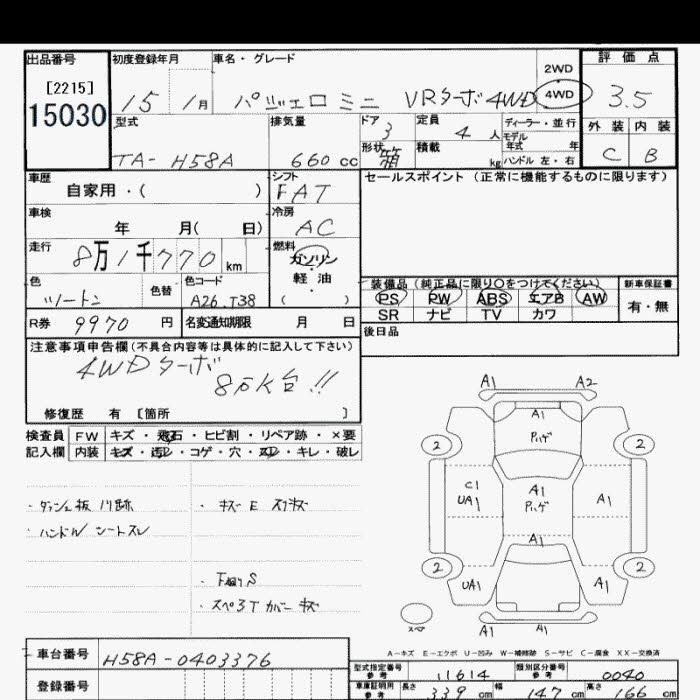 出品番号 初度登録年月 車名・グレード 評価点
[2215]
15030
15 1月 パジェロミニ VRターボ4WD 2WD・4WD 3.5
型式 排気量 ドア 定員 ディーラー・並行 外装 内装
TA- H58A 660cc 3 4人 モデル年式 年 C B
形状 箱 積載 kg ハンドル 左・右
車歴 シフト セールスポイント (正常に機能するものに限ります)
自家用・( ) FAT
車検 冷房
年 月( 日) AC
走行 燃料
8万1千770km ガソリン
軽油
( )
色 色替 色コード 装備品 (純正品に限り○をつけてください) 新車保証書
ツートン A26.T38 PS PW ABS エアB AW 有・無
SR ナビ TV カワ
R券 9970円 名変通知期限 月 日
後日品
注意事項申告欄(不具合内容等は具体的に記入して下さい)
4WDターボ
8万K台!!
修復歴 有 [箇所 ]
検査員 FW キズ・飛石・ヒビ割・リペア跡・×要
記入欄 内装 キズ・汚レ・コゲ・穴・スレ・キレ・破レ
・ダッシュ板 ノリ跡 ・キズ E スリキズ
・ハンドル シートスレ
・下廻りS
・スペ3T カバーキズ
A1 A2
A1
ハゲ
2 2
C1
UA1 A1
ハゲ A1
A1
2 2
UA1 A1
スペア A1 A1
A-キズ E-エクボ U-凹み W-補修跡 S-サビ C-腐食 XX-交換済
車台番号 H58A-0403376
型式指定番号 参考 11614 類別区分番号 参考 0040
登録番号 車庫証明用 参考 長さ 339cm 幅 147cm 高さ 166cm